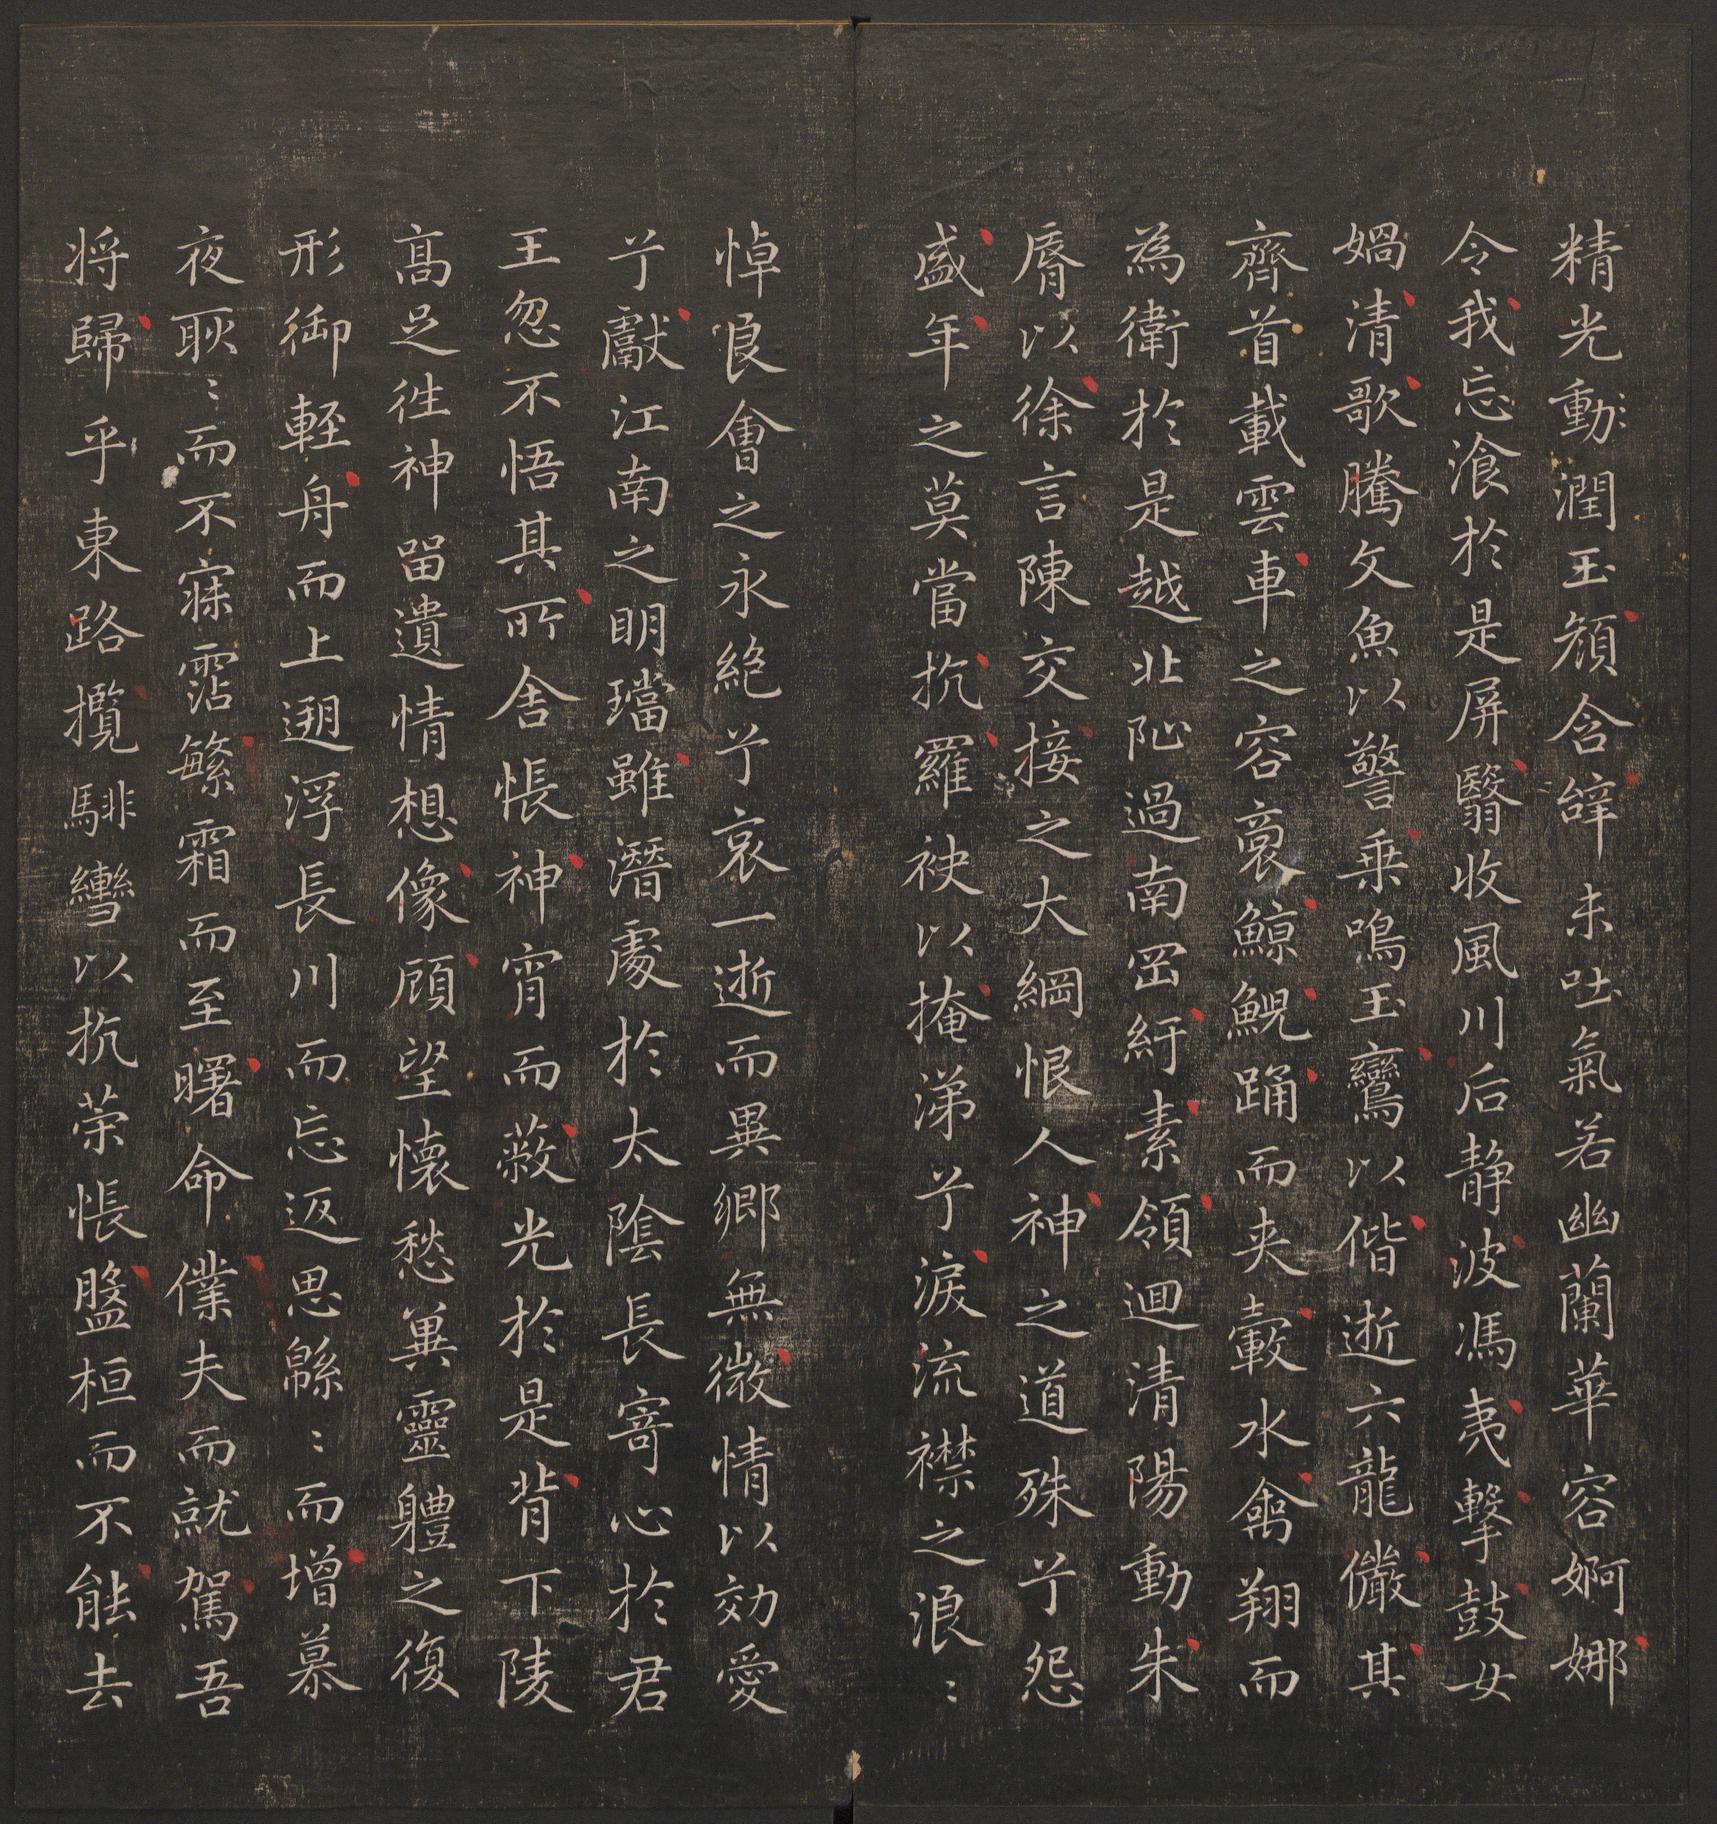 精光動潤玉顏含辞未吐氣若幽蘭華容婀娜
令我忘飡於是屏翳收風川后静波馮夷擊鼓女
媧清歌騰文魚以警乗鳴玉鸞以偕逝六龍儼其
齊首載雲車之容裔鯨鯢踊而夹轂水禽翔而
為衛於是越北沚過南岡紆素領迴清陽動朱
脣以徐言陳交接之大綱恨人神之道殊兮怨
盛年之莫當抗羅袂以掩涕兮淚流襟之浪〻
悼良會之永絶兮哀一逝而異郷無微情以効愛
兮獻江南之明璫雖潛處於太陰長寄心於君
王忽不悟其所舎悵神宵而蔽光於是背下陵
高足往神留遺情想像顧望懷愁兾靈軆之復
形御輕舟而上遡浮長川而忘返思緜〻而增慕
夜耿〻而不寐霑繁霜而至曙命僕夫而就駕吾
将歸乎東路攬騑轡以抗荣悵盤桓而不能去